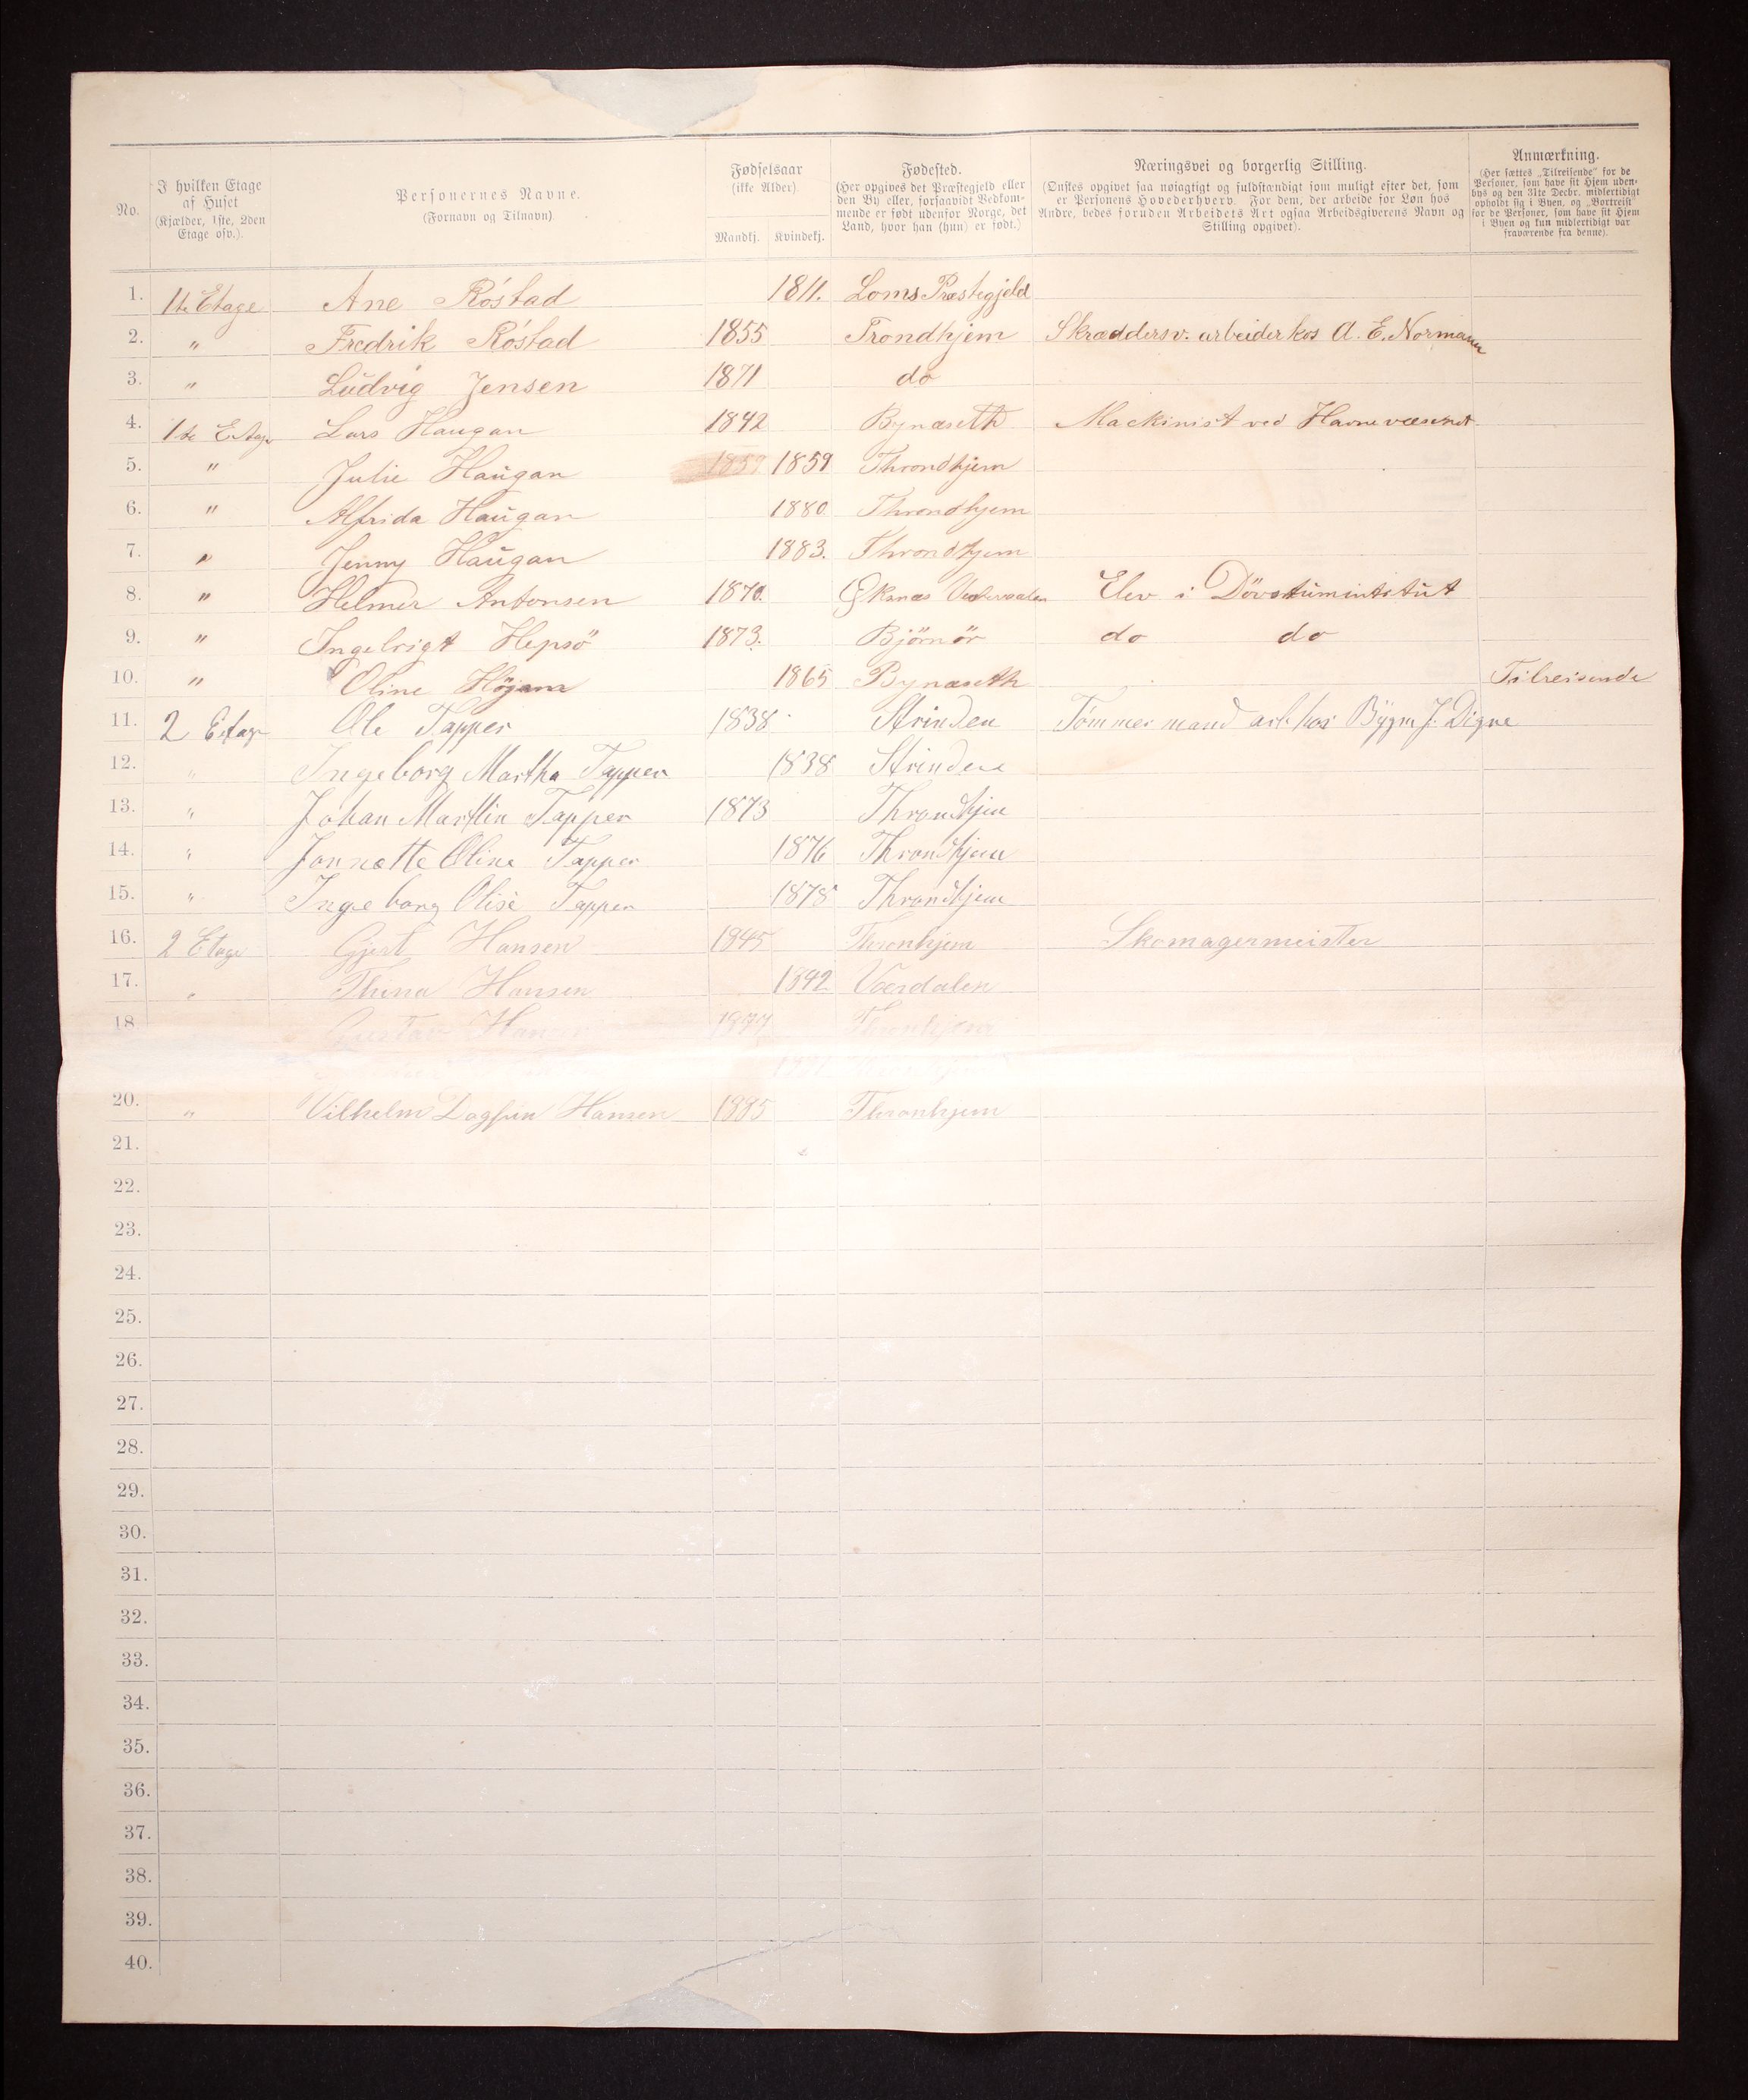 No.
I hvilken Etage
af Huset
(Kjælder, 1ste, 2den
Etage osv.).
Personernes Navne.
(Fornavn og Tilnavn)
Fødselsaar
(ikke Alder)
Mandkj. Kvindekj.
Fødested.
(Her opgives det Præstegjeld eller
den By eller, forsaavidt Vedkom-
mende er født udenfor Norge, det
Land, hvor han (hun) er født.)
Næringsvei og borgerlig Stilling.
(Ønskes opgivet saa nøiagtigt og fuldstændigt som muligt efter det, som
er Personens Hovederhverv. For dem, der arbeide for Løn hos
Andre, bedes foruden Arbeidets Art ogsaa Arbeidsgiverens Navn og
Stilling opgivet).
Anmærkning.
(Her sættes „Tilreisende" for de
Personer, som have sit Hjem uden-
bys og den 31te Decbr. midlertidigt
opholdt sig i Byen, og „Bortreist"
for de Personer, som have sit Hjem
i Byen og kun midlertidigt var
fraværende fra denne).
1. 1te Etage Ane Röstad 1811. Loms Præstegjeld
2. " Fredrik Röstad 1855 Trondhjem Skræddersv. arbeider hos A. E. Normann
3. " Ludvig Jensen 1871 do
4. 1te Etage Lars Haugan 1842 Bynæseth Mackinist ved Havnevæsenet
5. " Julie Haugan 1859 1859 Throndhjem
6. " Alfrida Haugan 1880 Throndhjem
7. " Jenny Haugan 1883. Throndhjem
8. " Helmer Antonsen 1870. Øksnæs Elev i Dövstumintitut
9. " Ingebrigt Hepsö 1873. Björnör do do
10. " Oline 1865 Bynæseth Tilreisende
11. 2 Etage Ole Tapper 1838 Strinden Tömmermand arb hos Bygm J. Digre
12. " Ingeborg Martha Tapper 1838 Strinden
13. " Johan Marttin Tapper 1873 Throndhjem
14. " Jonnette Oline Tapper 1876 Throndhjem
15. " Ingeborg Olise Tapper 1878 Throndhjem
16. 2 Etage Gjert Hansen 1845 Thronhjem Skomagermeister
17. " Thina Hansen 1842 Værdalen
18 Gustav Hansen 1877 Thronhjem
20. " Vilhelm Dagfin Hansen 1885 Thronhjem
21.
22.
23.
24.
25.
26.
27.
28.
29.
30.
31.
32.
33.
34.
35.
36.
37.
38.
39.
40.